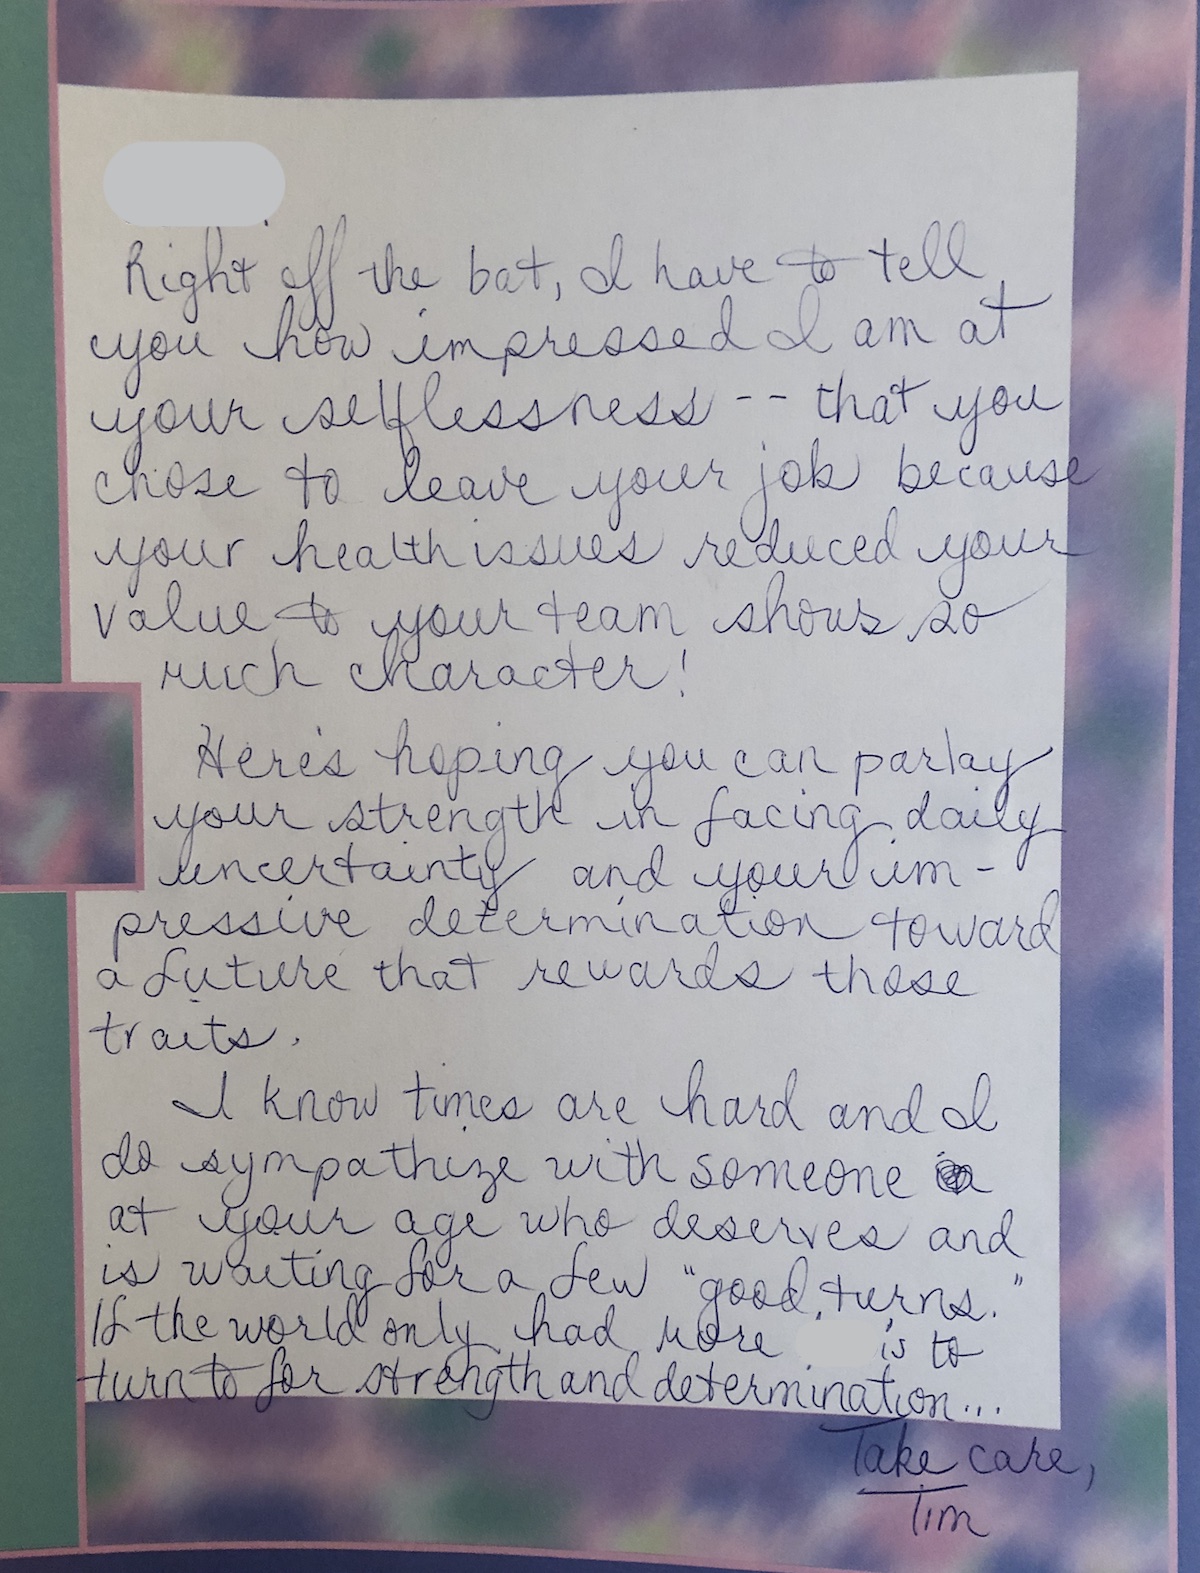 Right off the bat, I have to tell
you how impressed I am at
your selflessness -- that you
chose to leave your job because
your health issues reduced your
value to your team shows so
much character!
Here's hoping you can parlay
your strength in facing daily
uncertainty and your im-
pressive determination toward
a future that rewards those
traits.
I know times are hard and I
do sympathize with someone
at your age who deserves and
is waiting for a few "good turns."
If the world only had more 's to
turn to for strength and determination...
Take care,
Tim